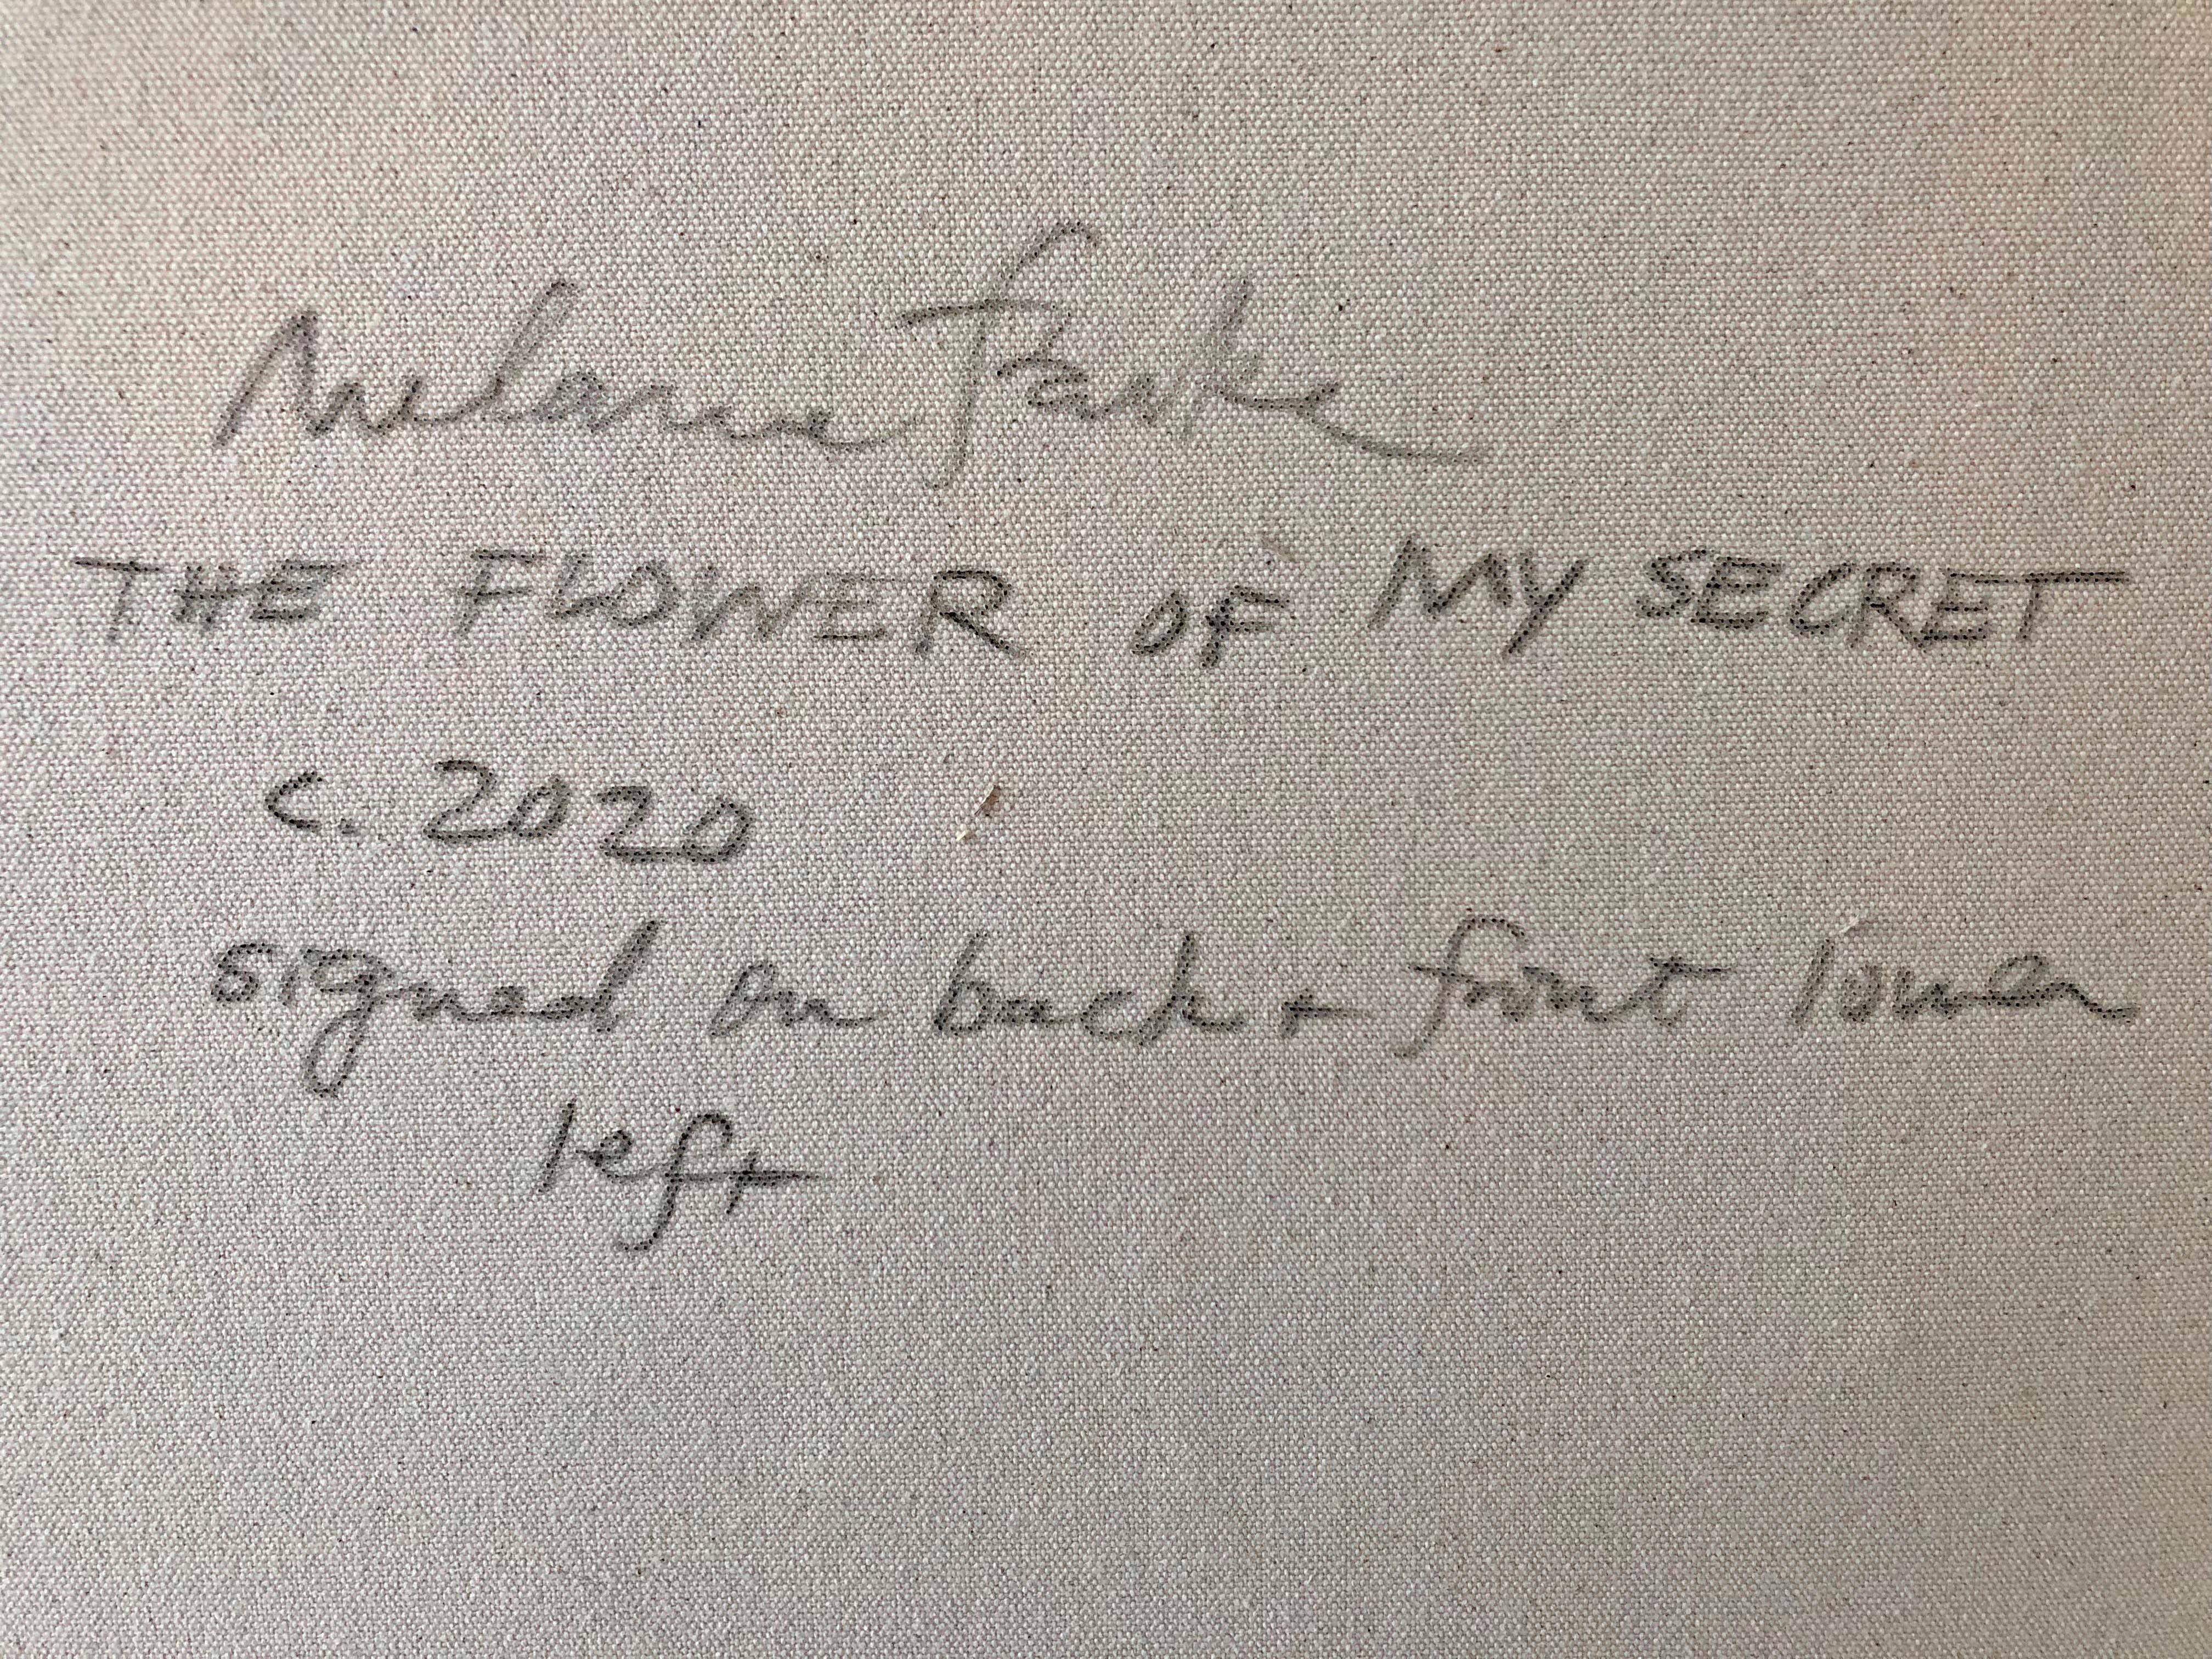 Melanie Franke
THE FLOWER OF MY SECRET
c. 2020
signed on back + front lower
left